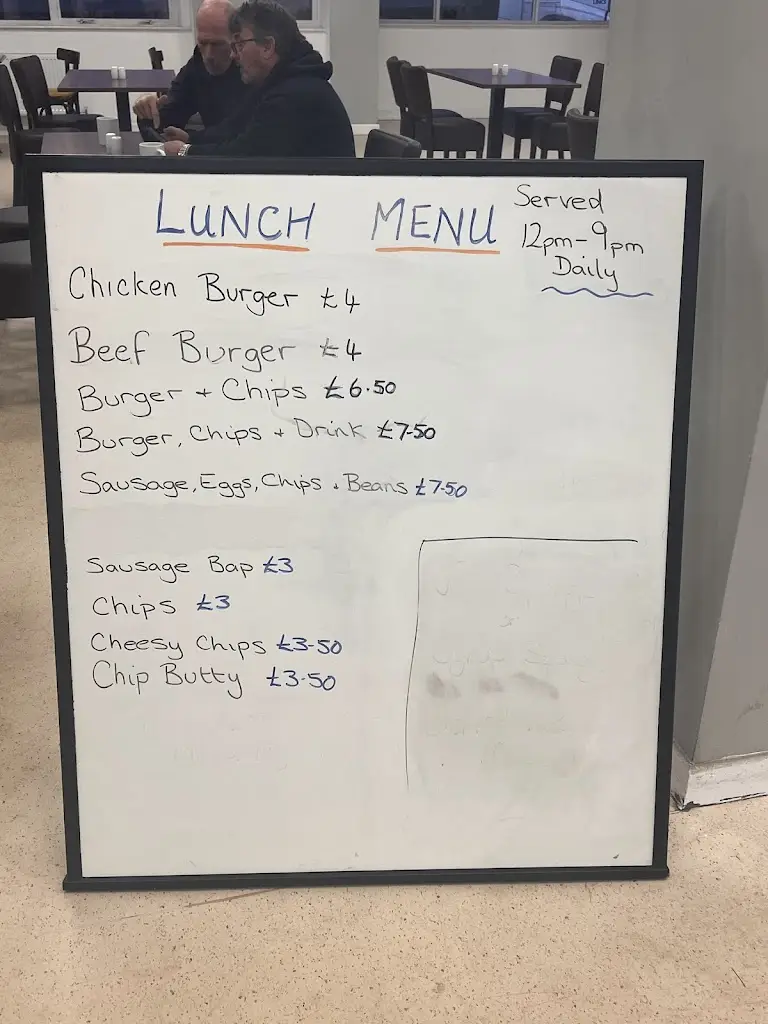 LUNCH MENU
Served
12pm-9pm
Daily
Chicken Burger £4
Beef Burger £4
Burger + Chips £6.50
Burger, Chips + Drink £7.50
Sausage, Eggs, Chips + Beans £7.50
Sausage Bap £3
Chips £3
Cheesy Chips £3.50
Chip Butty £3.50